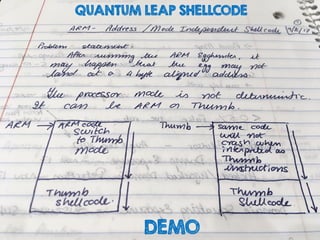 QUANTUM LEAP SHELLCODE
ARM - Address / Mode Independent Shellcode
Problem statement:
After running the ARM Egghunter, it
may happen that the egg may not
land at a 4 byte aligned address.
The processor mode is not deterministic.
It can be ARM or Thumb.
ARM → ARM code
switch
to Thumb
mode
Thumb
shellcode.
Thumb → same code
will not
crash when
interpreted as
Thumb
instructions
Thumb
Shellcode
DEMO